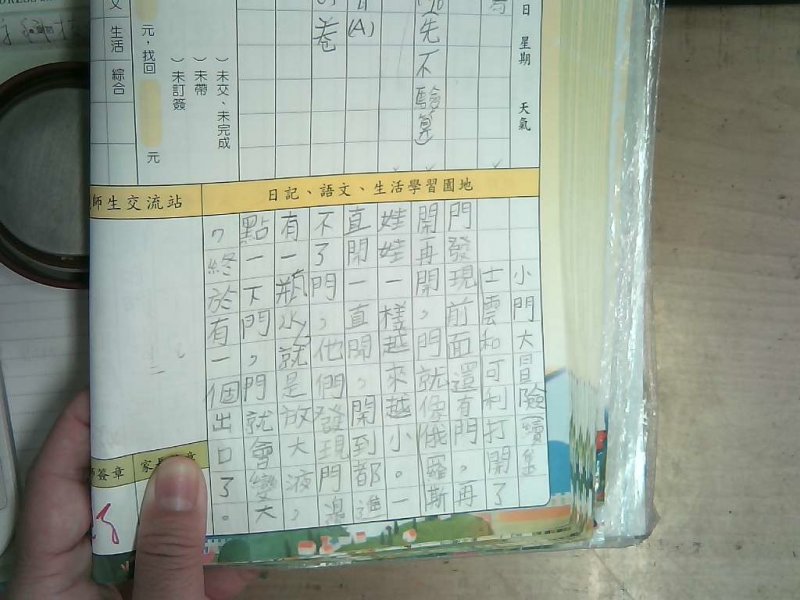 日 星期 天氣
先不驗算
(A)
卷
)未交、未完成
)未帶
)未訂簽
元,找回 元
生活 綜合
日記、語文、生活學習園地
師生交流站
小門大冒險續集
士雲和可利打開了
門發現前面還有門。再
開再開,門就像俄羅斯
娃娃一樣越來越小。一
直開一直開,開到都進
不了門,他們發現門邊
有一瓶水就是放大液,
點一下門,門就會變大
了終於有一個出口了。
師簽章
家長簽章